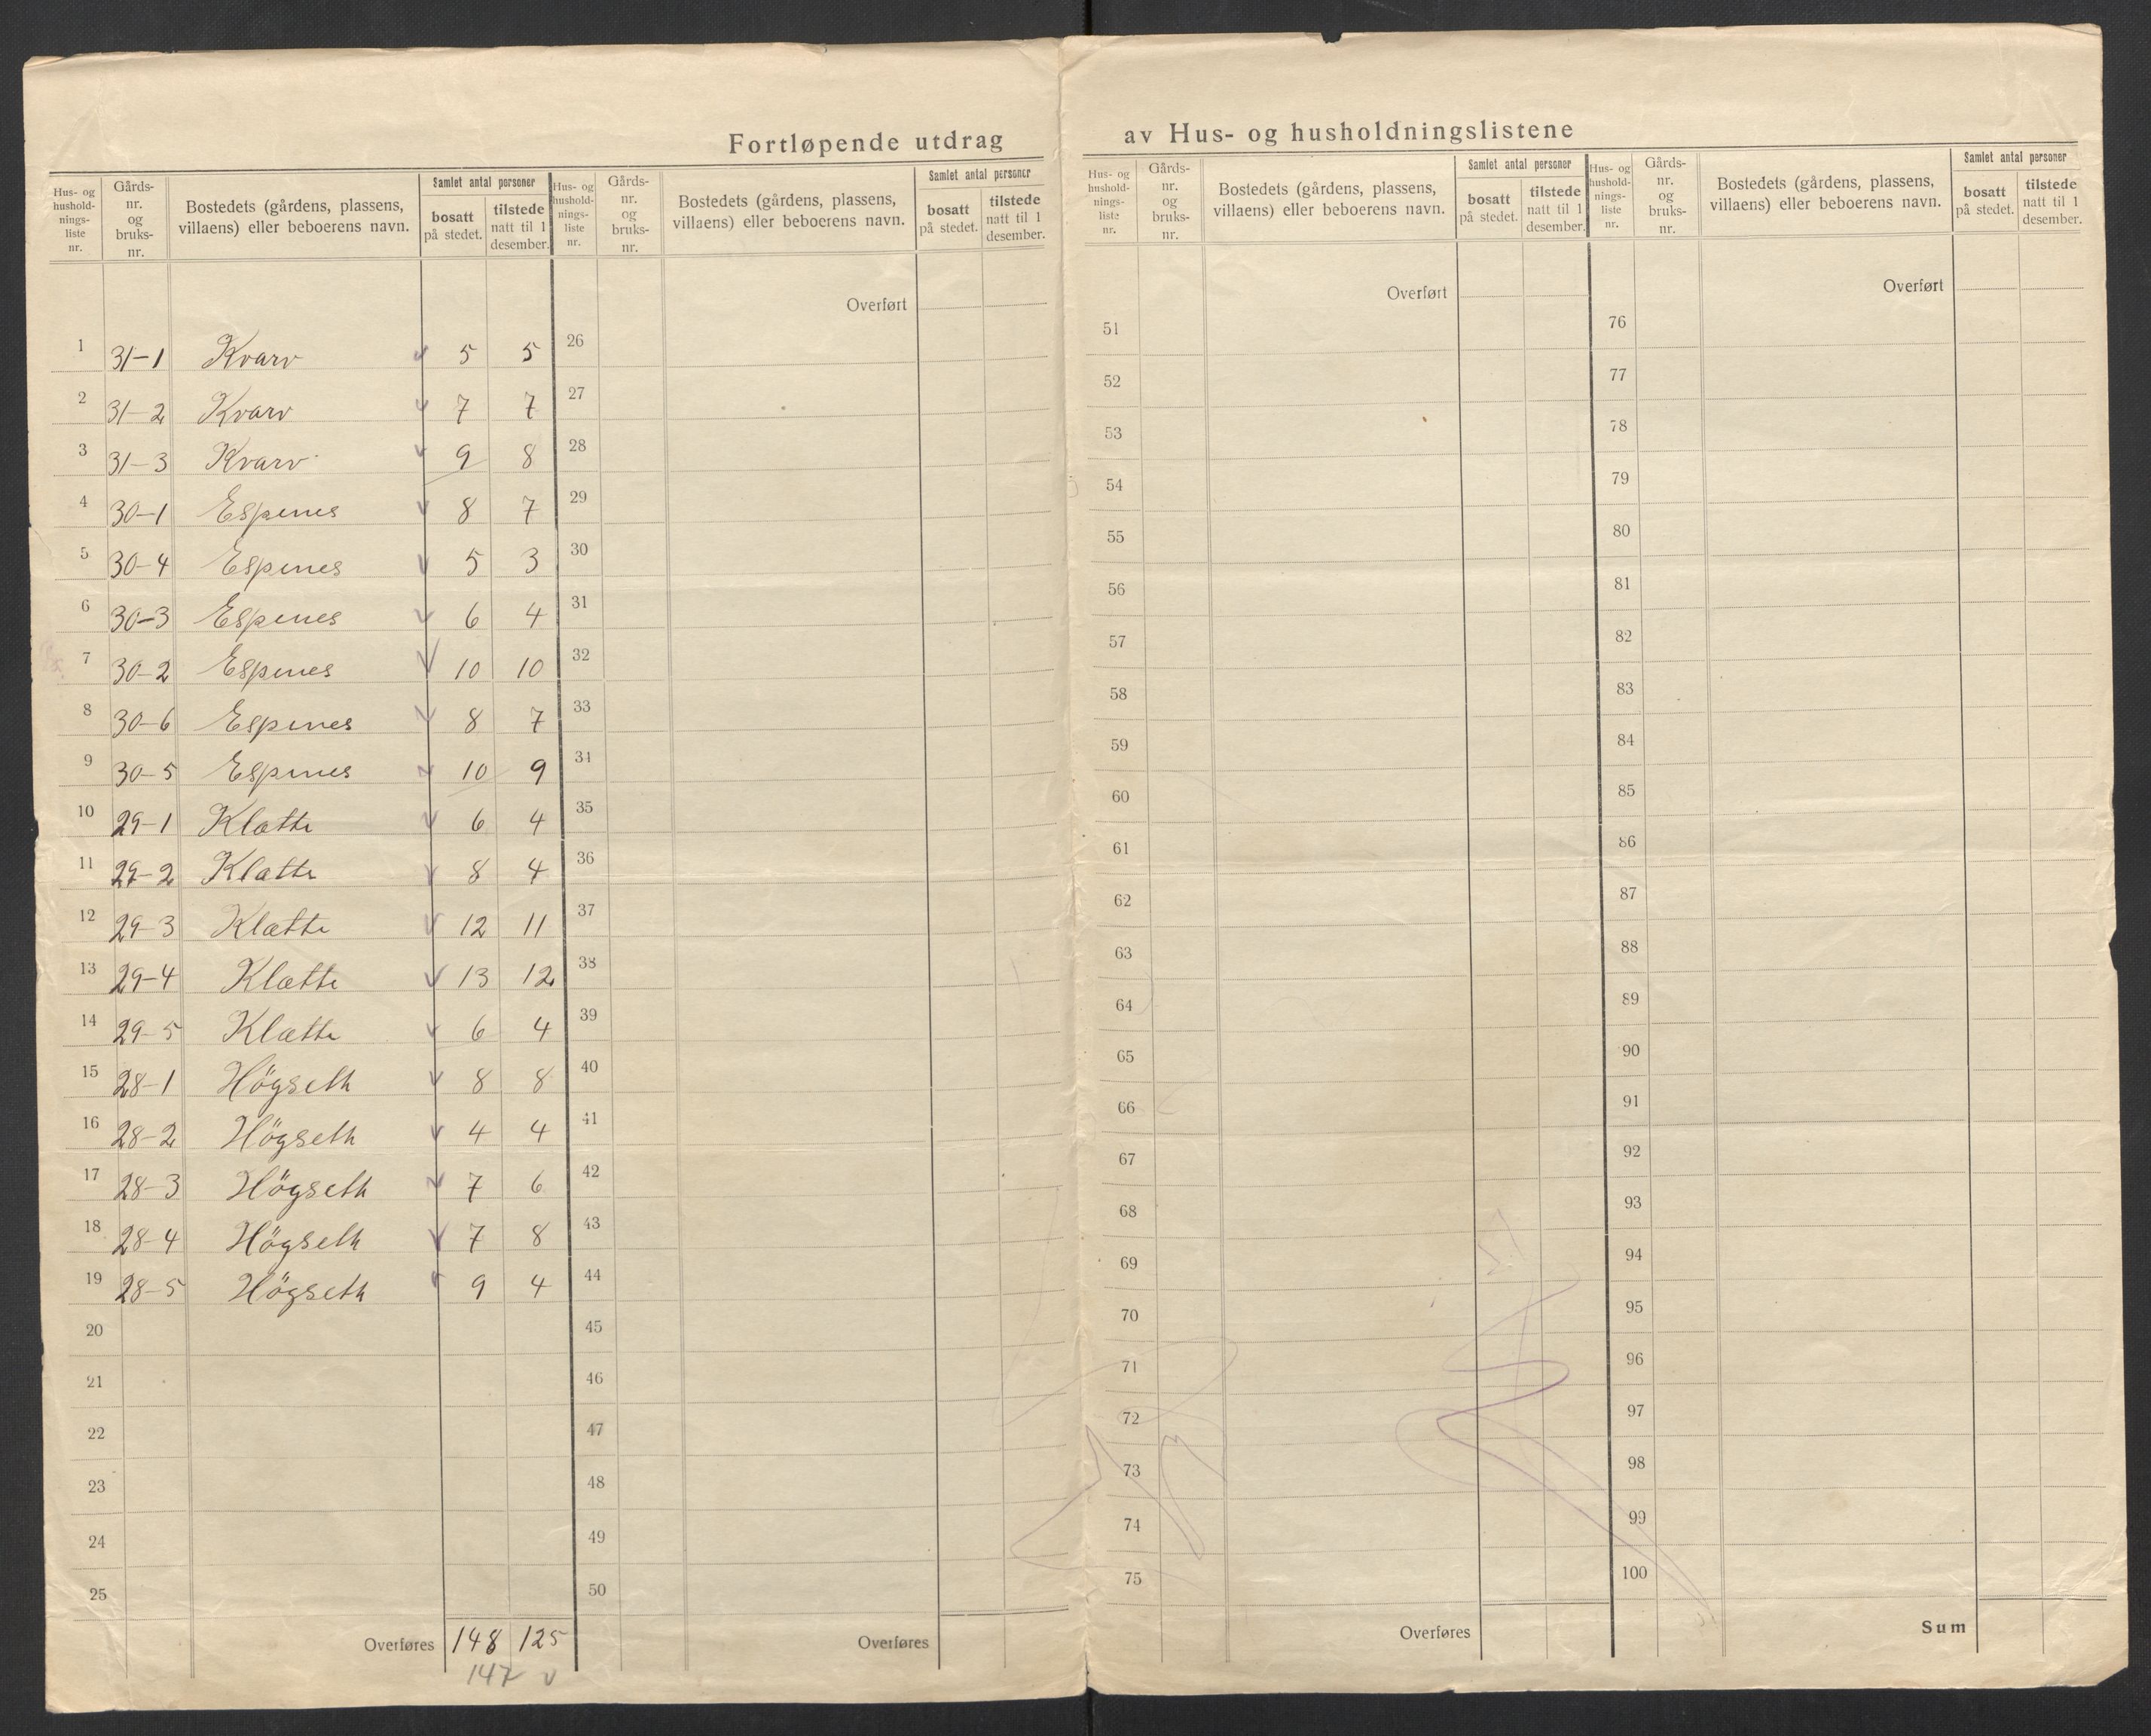 Fortløpende utdrag av Hus- og husholdningslistene
Hus- og hushold-nings-liste nr. | Gårds-nr. og bruks-nr. | Bostedets (gårdens, plassens, villaens) eller beboerens navn. | Samlet antal personer | bosatt på stedet. | tilstede natt til 1 desember.
Hus- og hushold-nings-liste nr. | Gårds-nr. og bruks-nr. | Bostedets (gårdens, plassens, villaens) eller beboerens navn. | Samlet antal personer | bosatt på stedet. | tilstede natt til 1 desember.
Hus- og hushold-nings-liste nr. | Gårds-nr. og bruks-nr. | Bostedets (gårdens, plassens, villaens) eller beboerens navn. | Samlet antal personer | bosatt på stedet. | tilstede natt til 1 desember.
Hus- og hushold-nings-liste nr. | Gårds-nr. og bruks-nr. | Bostedets (gårdens, plassens, villaens) eller beboerens navn. | Samlet antal personer | bosatt på stedet. | tilstede natt til 1 desember.
1 31-1 Kvarv 5 5
2 31-2 Kvarv 7 7
3 31-3 Kvarv 9 8
4 30-1 Espenes 8 7
5 30-4 Espenes 5 3
6 30-3 Espenes 6 4
7 30-2 Espenes 10 10
8 30-6 Espenes 8 7
9 30-5 Espenes 10 9
10 29-1 Klætte 6 4
11 29-2 Klætte 8 4
12 29-3 Klætte 12 11
13 29-4 Klætte 13 12
14 29-5 Klætte 6 4
15 28-1 Högseth 8 8
16 28-2 Högseth 4 4
17 28-3 Högseth 7 6
18 28-4 Högseth 7 8
19 28-5 Högseth 9 4
20
21
22
23
24
25
Overføres 148 125
147 v
Overført
26
27
28
29
30
31
32
33
34
35
36
37
38
39
40
41
42
43
44
45
46
47
48
49
50
Overføres
Overført
51
52
53
54
55
56
57
58
59
60
61
62
63
64
65
66
67
68
69
70
71
72
73
74
75
Overføres
Overført
76
77
78
79
80
81
82
83
84
85
86
87
88
89
90
91
92
93
94
95
96
97
98
99
100
Sum